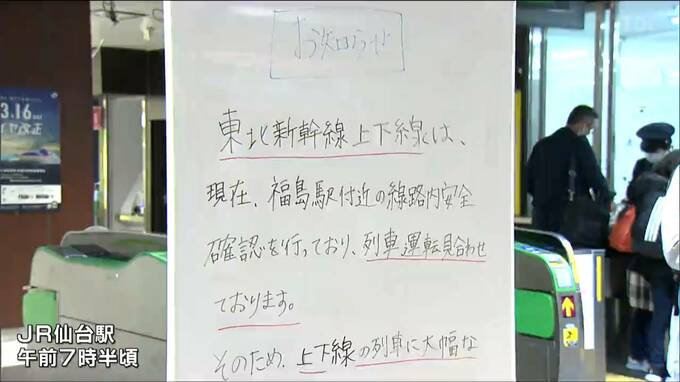 おうちらせ
東北新幹線上下線は、
現在、福島駅付近の線路内安全
確認を行っており、列車運転見合わせ
ております。
そのため、上下線の列車に大幅な
3.16
ダイヤ改正
JR仙台駅
午前7時半頃